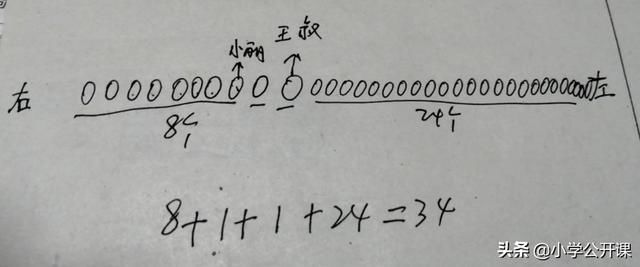 小丽 王叔
右 左
8个 24个
8+1+1+24=34
头条 @小学公开课